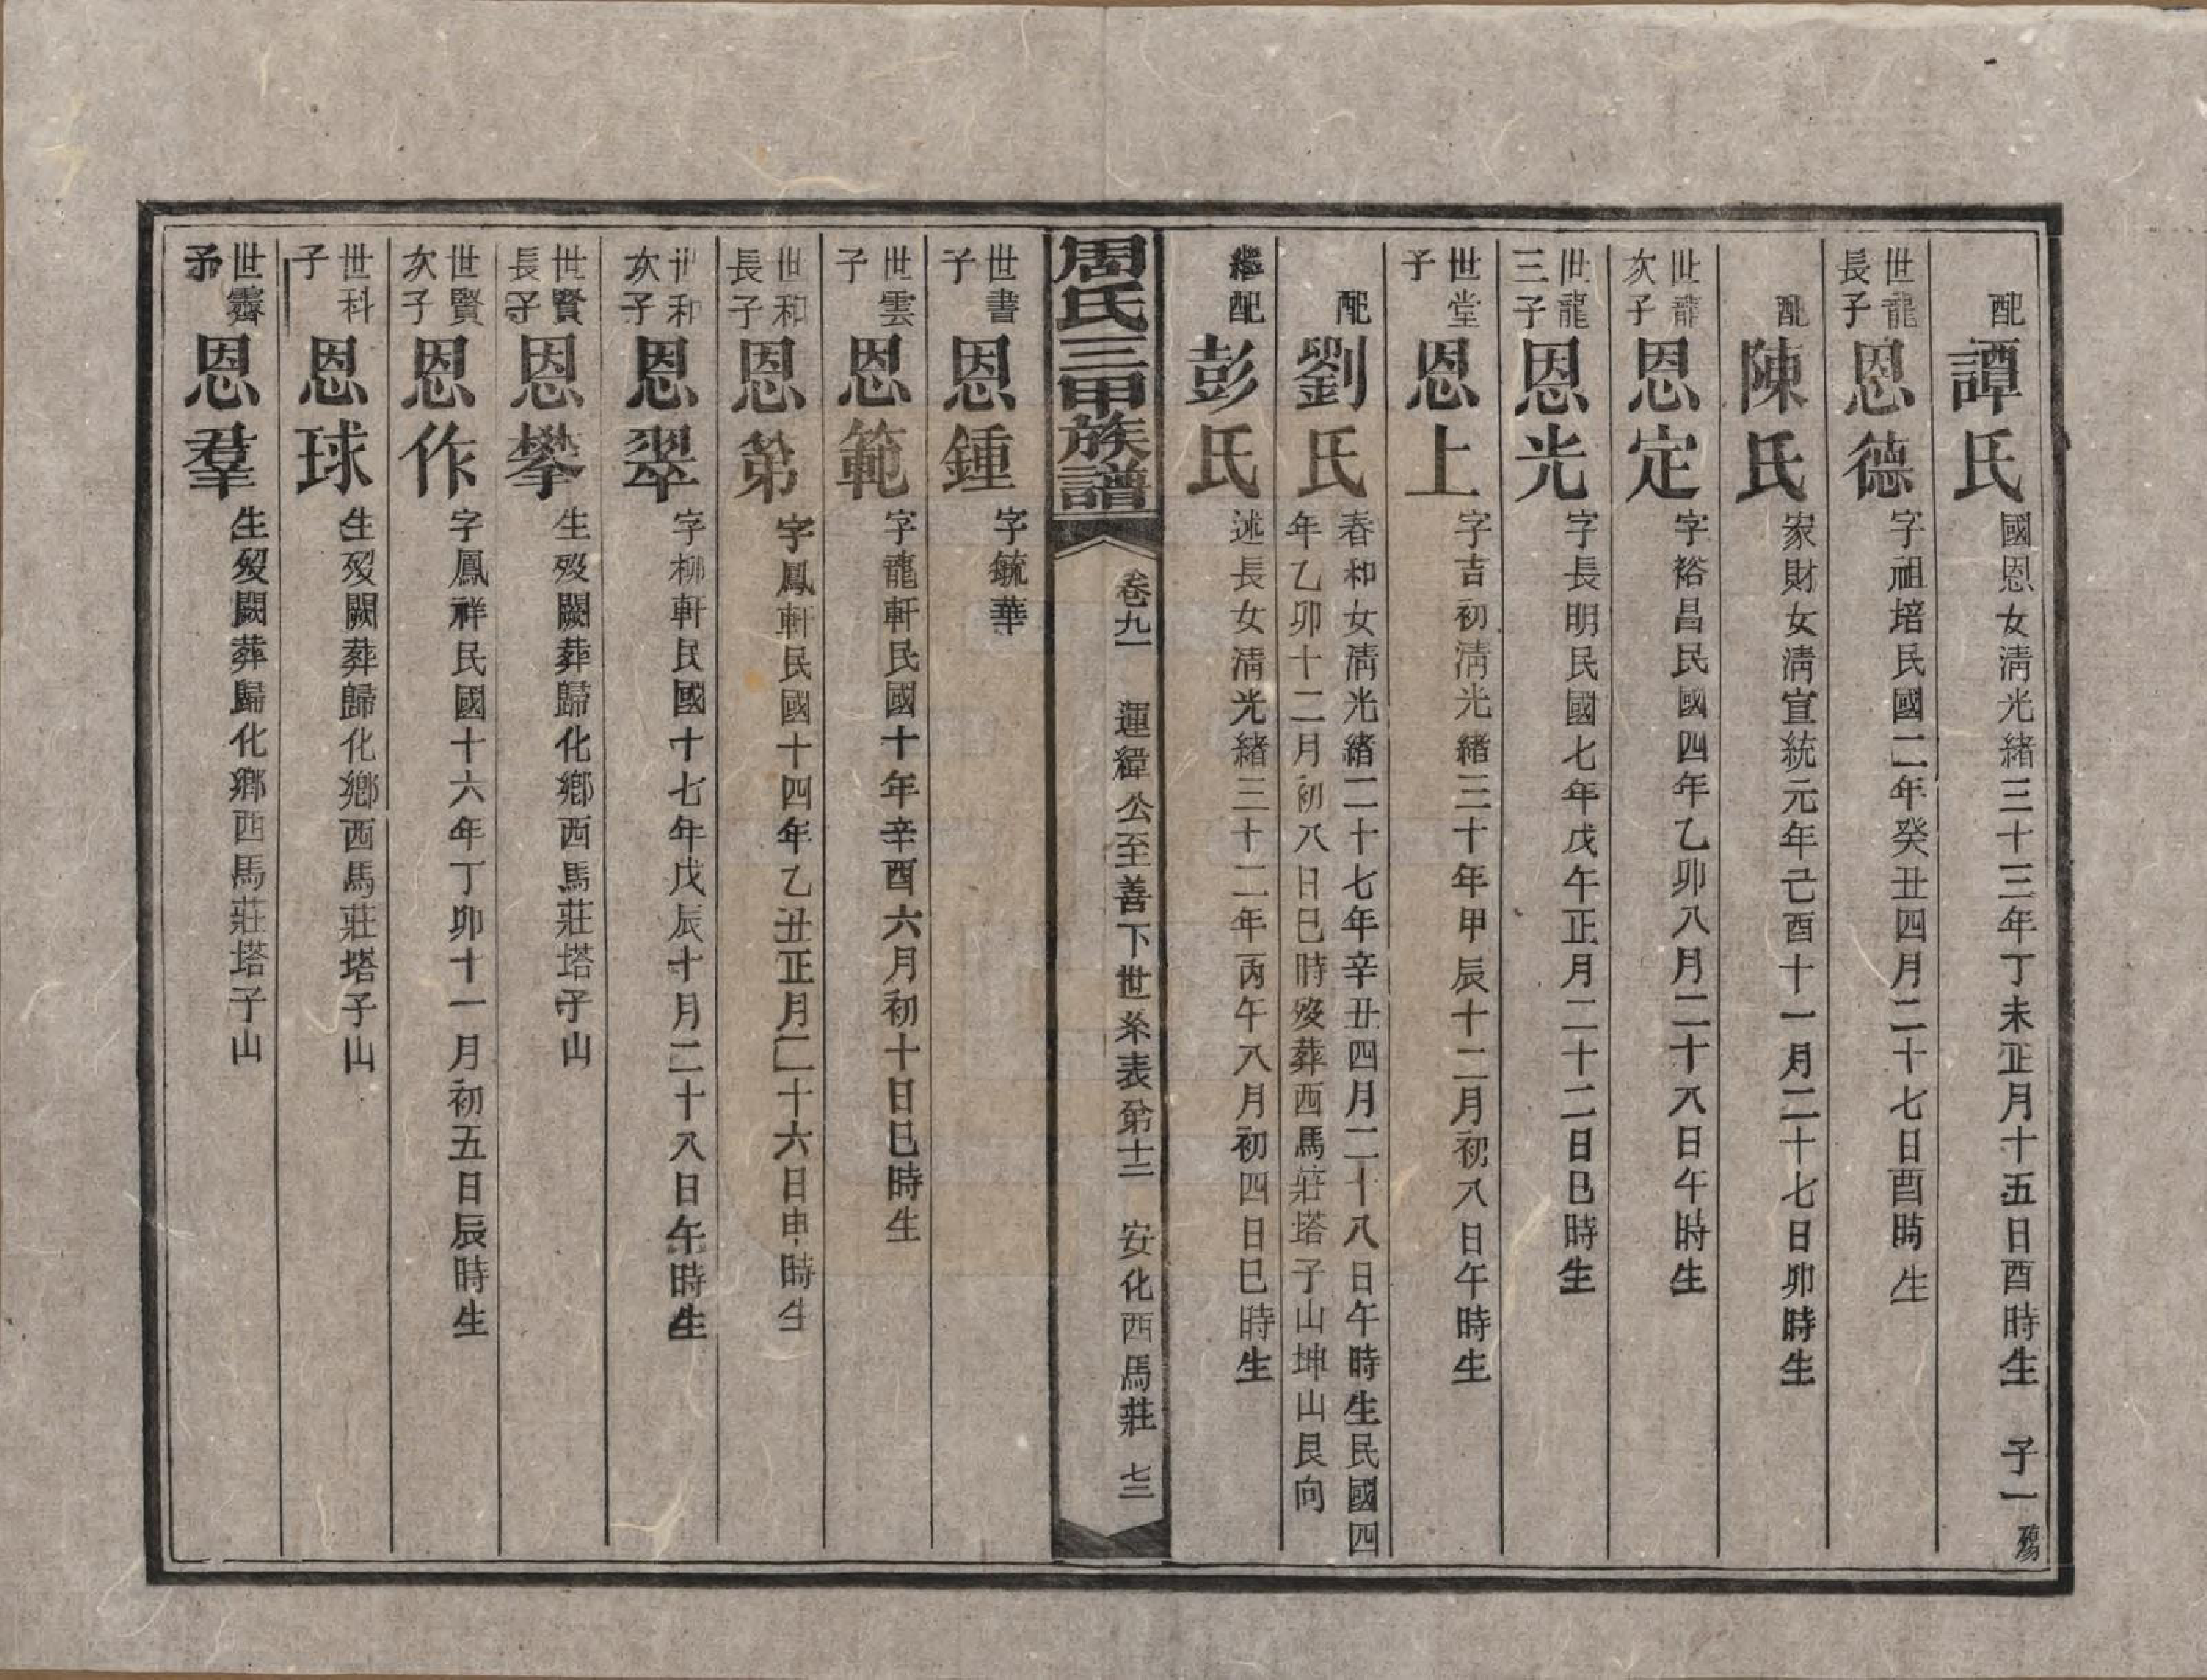 配 譚氏 國恩女清光緒三十三年丁未正月十五日酉時生 子一
世龍長子 恩德 字祖培民國二年癸丑四月二十七日酉時生
配 陳氏 家財女清宣統元年己酉十一月二十七日卯時生
世龍次子 恩定 字裕昌民國四年乙卯八月二十八日午時生
世龍三子 恩光 字長明民國七年戊午正月二十二日巳時生
世堂子 恩上 字吉初清光緒三十年甲辰十二月初八日午時生
配 劉氏 春和女清光緒二十七年辛丑四月二十八日午時生民國四
年乙卯十二月初八日巳時歿葬西馬莊塔子山坤山艮向
繼配 彭氏 述長女清光緒三十二年丙午八月初四日巳時生
周氏三甲族譜 卷九一 運緯公至善下世系表第十二 安化西馬莊 七三
世書子 恩鍾 字毓華
世雲子 恩範 字龍軒民國十年辛酉六月初十日巳時生
世和長子 恩第 字鳳軒民國十四年乙丑正月二十六日申時生
世和次子 恩翠 字柳軒民國十七年戊辰十月二十八日午時生
世賢長子 恩攀 生歿闕葬歸化鄉西馬莊塔子山
世賢次子 恩作 字鳳祥民國十六年丁卯十一月初五日辰時生
世科子 恩球 生歿闕葬歸化鄉西馬莊塔子山
世霽子 恩羣 生歿闕葬歸化鄉西馬莊塔子山